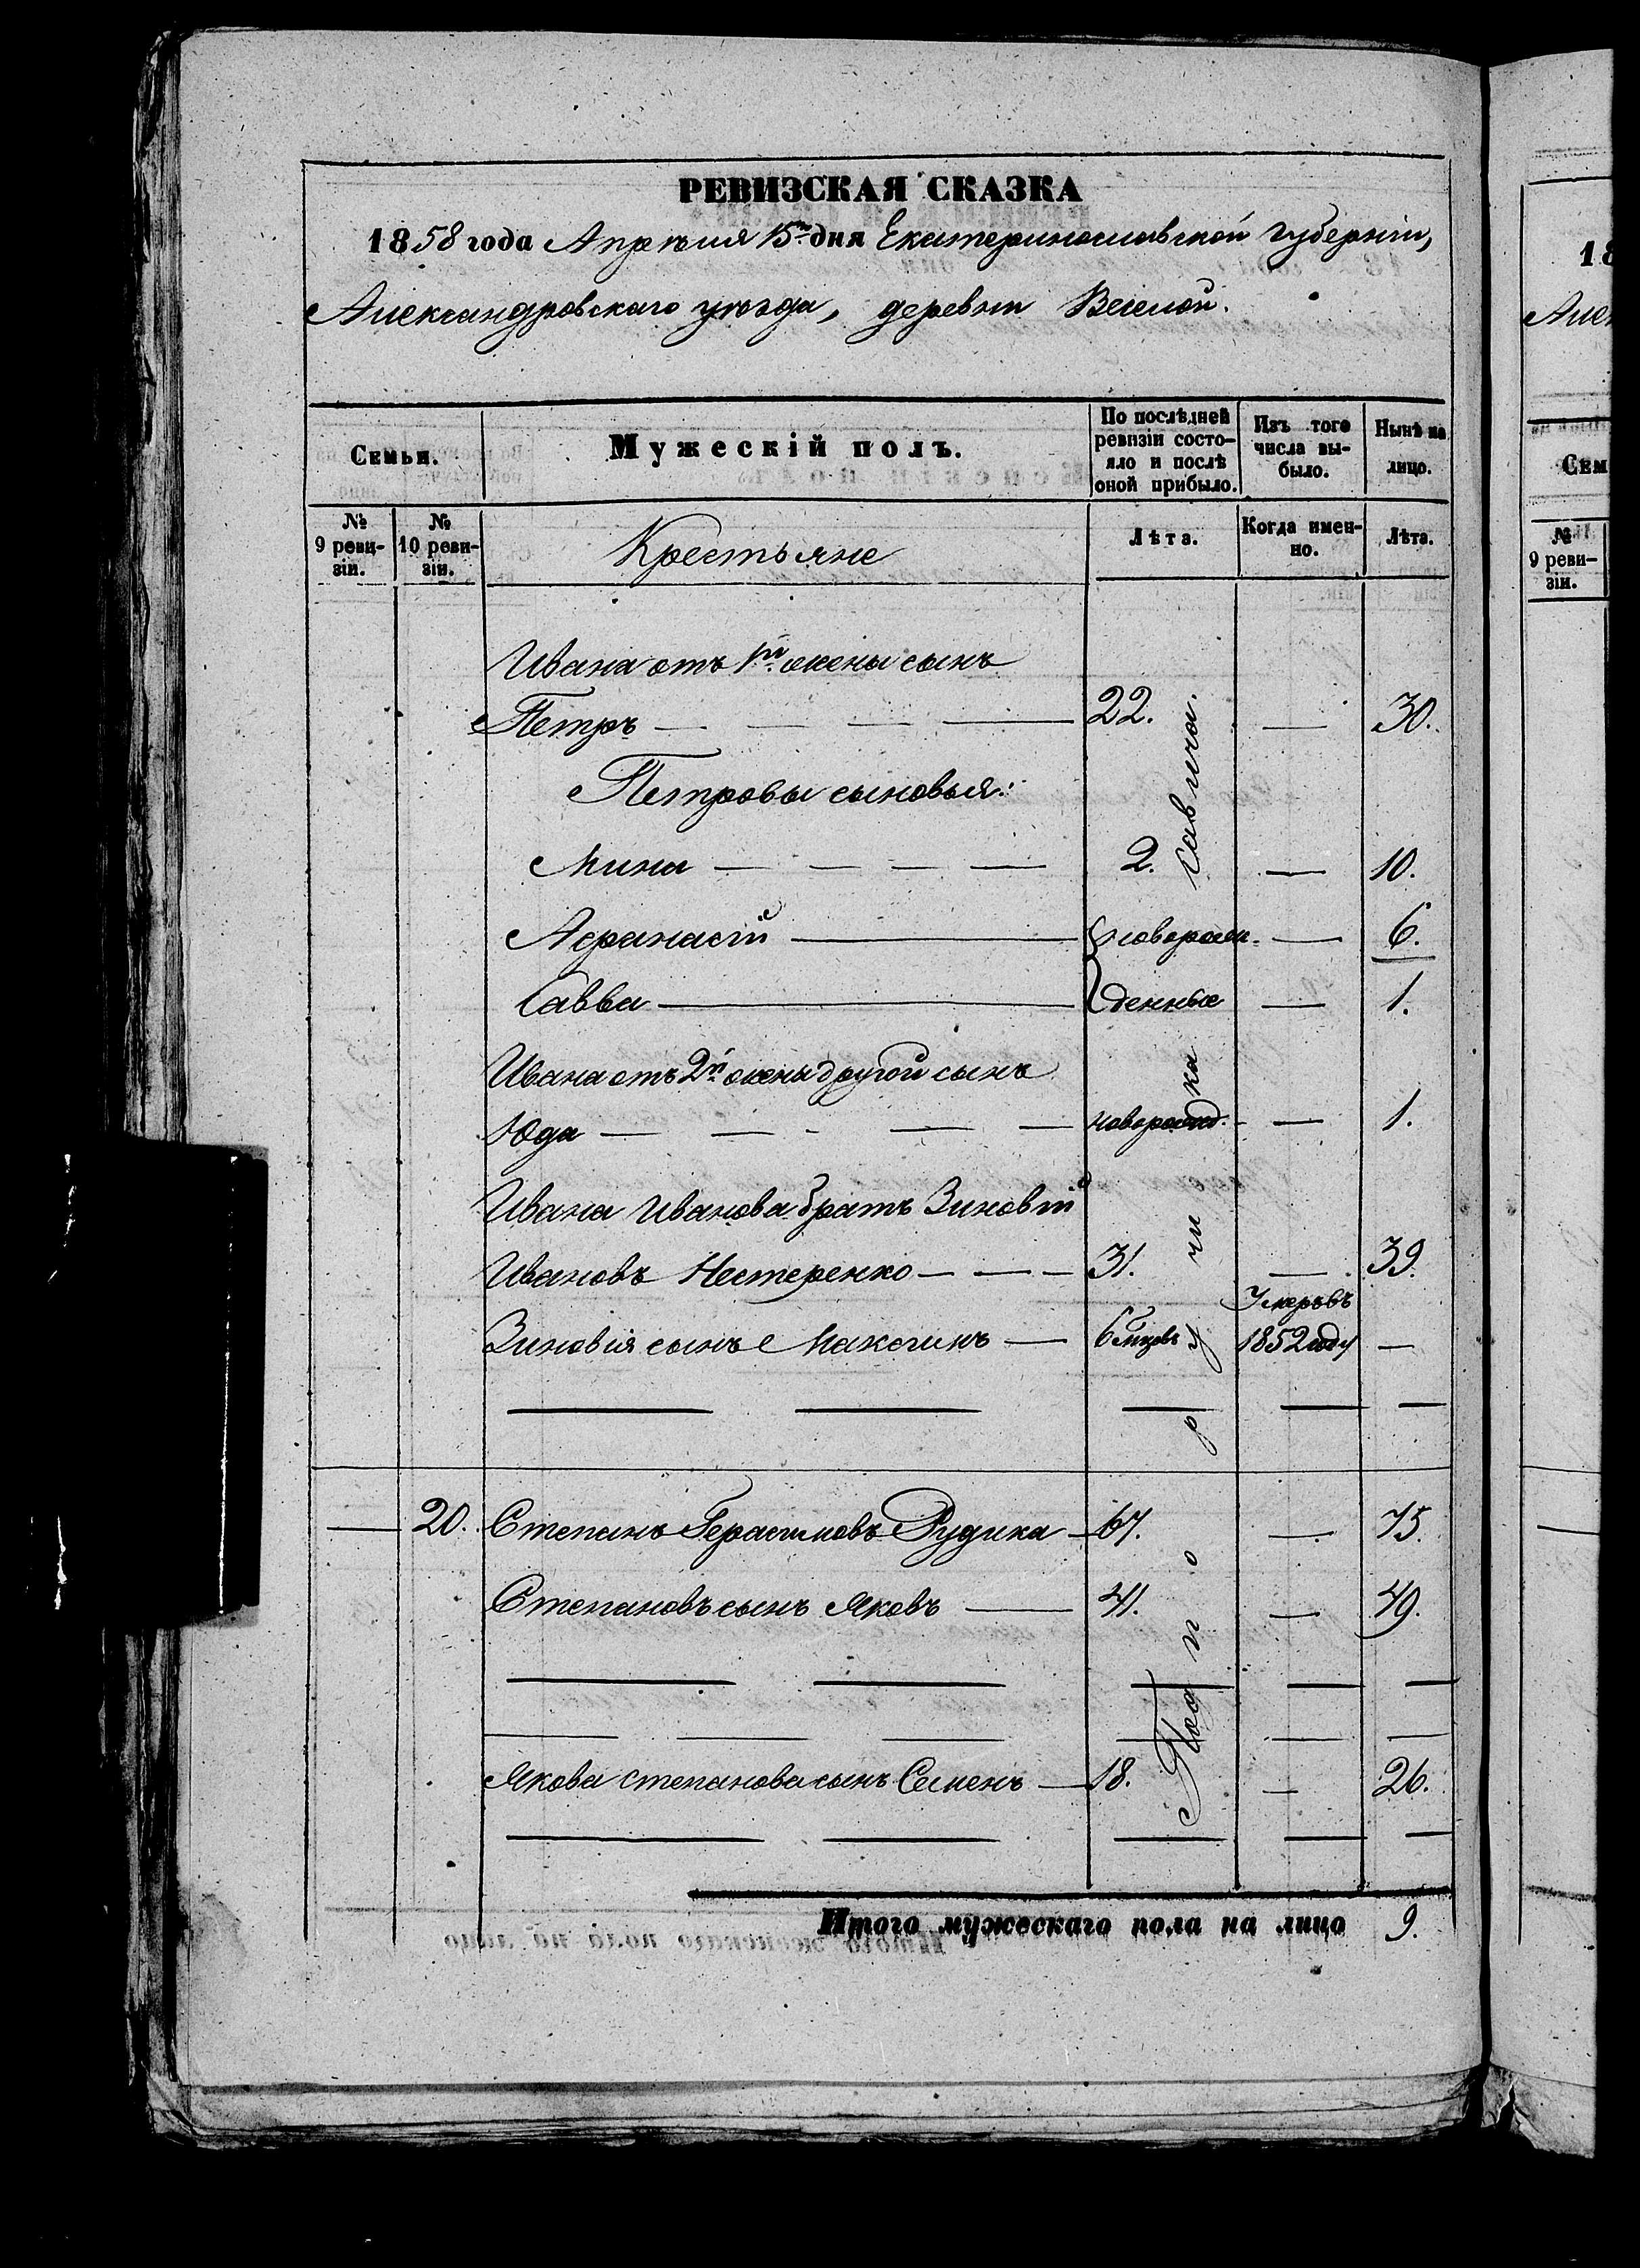 РЕВИЗСКАЯ СКАЗКА
1858 года Апрѣля 15го дня Екатеринославской губерніи,
Александровскаго уѣзда, деревни Веселой.
Семьи.
Мужескій полъ.
По послѣдней ревизіи состояло и послѣ оной прибыло.
Изъ того числа выбыло.
Нынѣ на лицо.
№ 9 ревизіи.
№ 10 ревизіи.
Крестьяне
Лѣта.
Когда именно.
Лѣта.
Ивана отъ 1й жены сынъ
Петръ — — — — 22. — 30.
Петровы сыновья:
Мина — — — — 2. — 10.
Афанасій — новорож- — 6.
Савва — денные — 1.
Ивана отъ 2й жены другой сынъ
Юда — — - — — новорожд. - — 1.
Ивана Иванова братъ Зиновій
Ивановъ Нестеренко — — — 31. — 39.
Зиновія сынъ Максимъ — 6 мѣсяцовъ Умеръ въ 1852 году —
— 20. Степанъ Герасимовъ Рудика — 67. — 75.
Степановъ сынъ Яковъ — 41. — 49.
Якова Степанова сынъ Семенъ — 18. — 26.
Итого мужескаго пола на лицо 9.
Савича.
Под по р у чи ка
18
Алек
Сем
№
9 реви-
зіи.